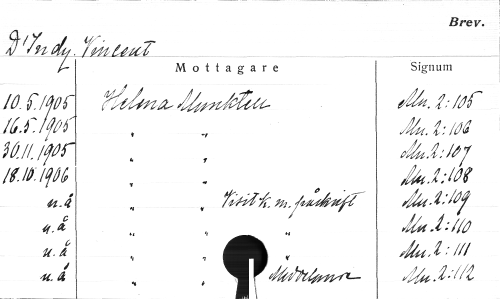 Brev.
D'Indy, Vincent
Mottagare Signum
10.5.1905 Helena Munktell Mu. 2:105
16.5.1905 " " Mu. 2:106
30.11.1905 " " Mu. 2:107
18.10.1906 " " Mu. 2:108
u.å " " Visitk. m. påskrift Mu. 2:109
u.å " " " Mu. 2:110
u.å " " " Mu. 2:111
u.å " " Mu. 2:112